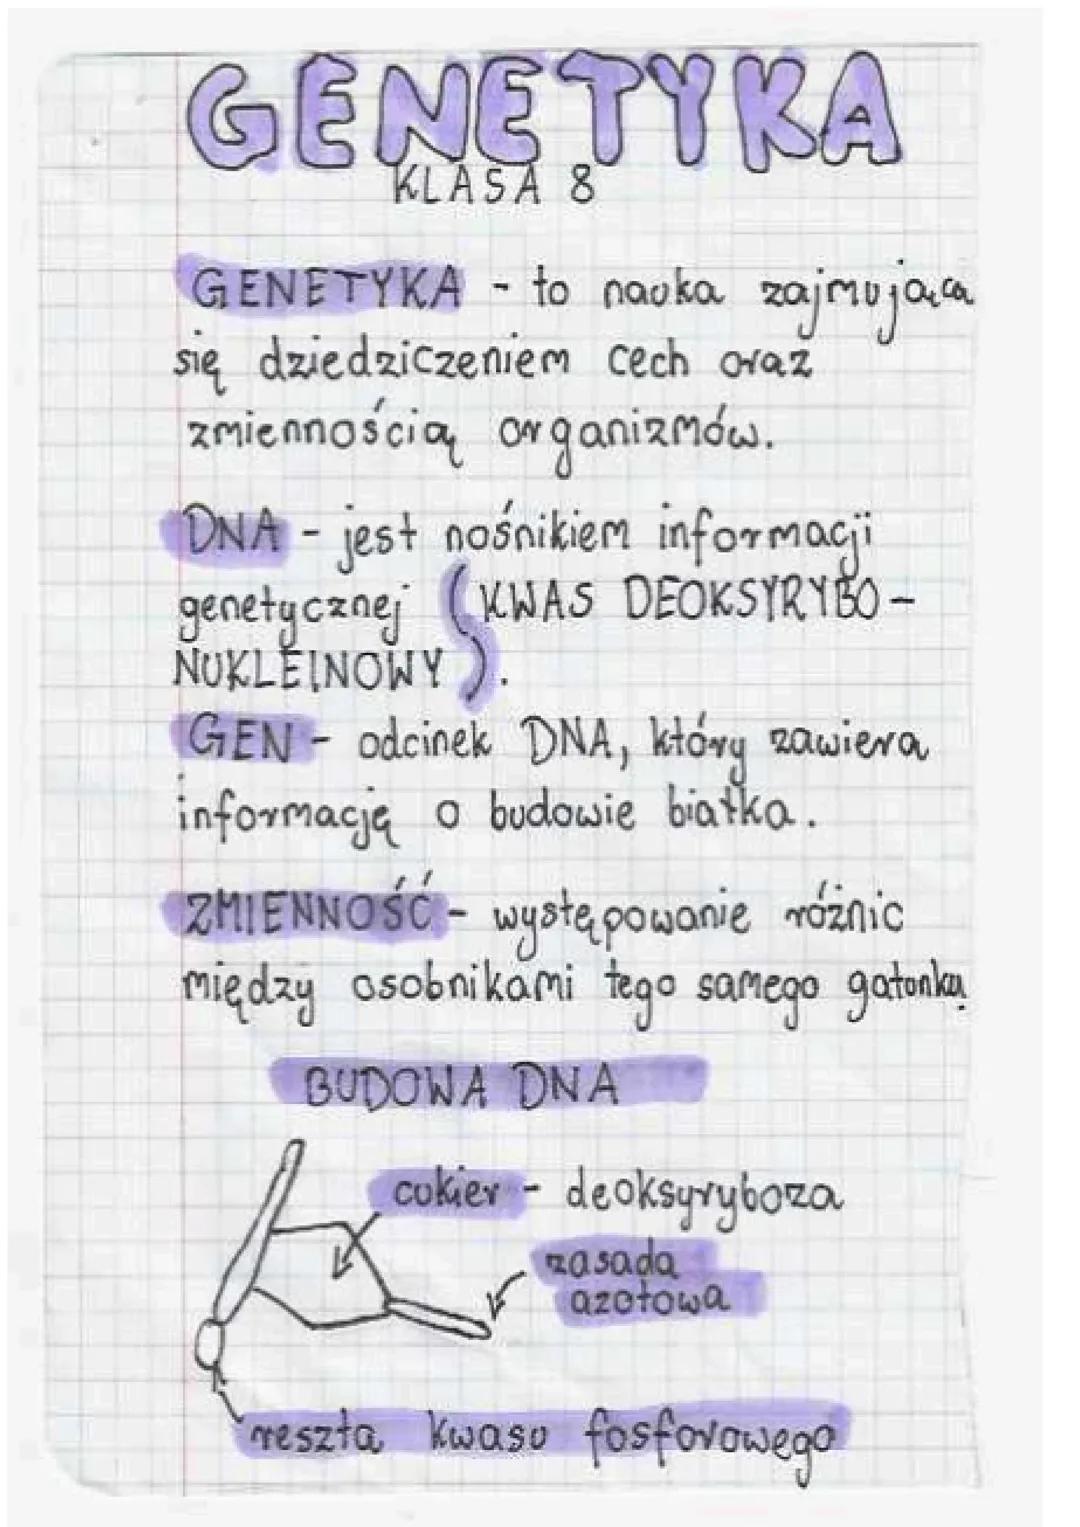 GENETYKA
KLASA 8
GENETYKA - to nauka zajmująca
się dziedziczeniem cech oraz
zmiennością organizmów.
DNA - jest nośnikiem informacji
genetycznej (KWAS DEOKSYRYBO-
NUKLEINOWY).
GEN - odcinek DNA, który zawiera
informację o budowie białka.
ZMIENNOŚĆ - występowanie różnic
między osobnikami tego samego gatunku
BUDOWA DNA
cukier - deoksyryboza
zasada
azotowa
reszta kwasu fosforowego